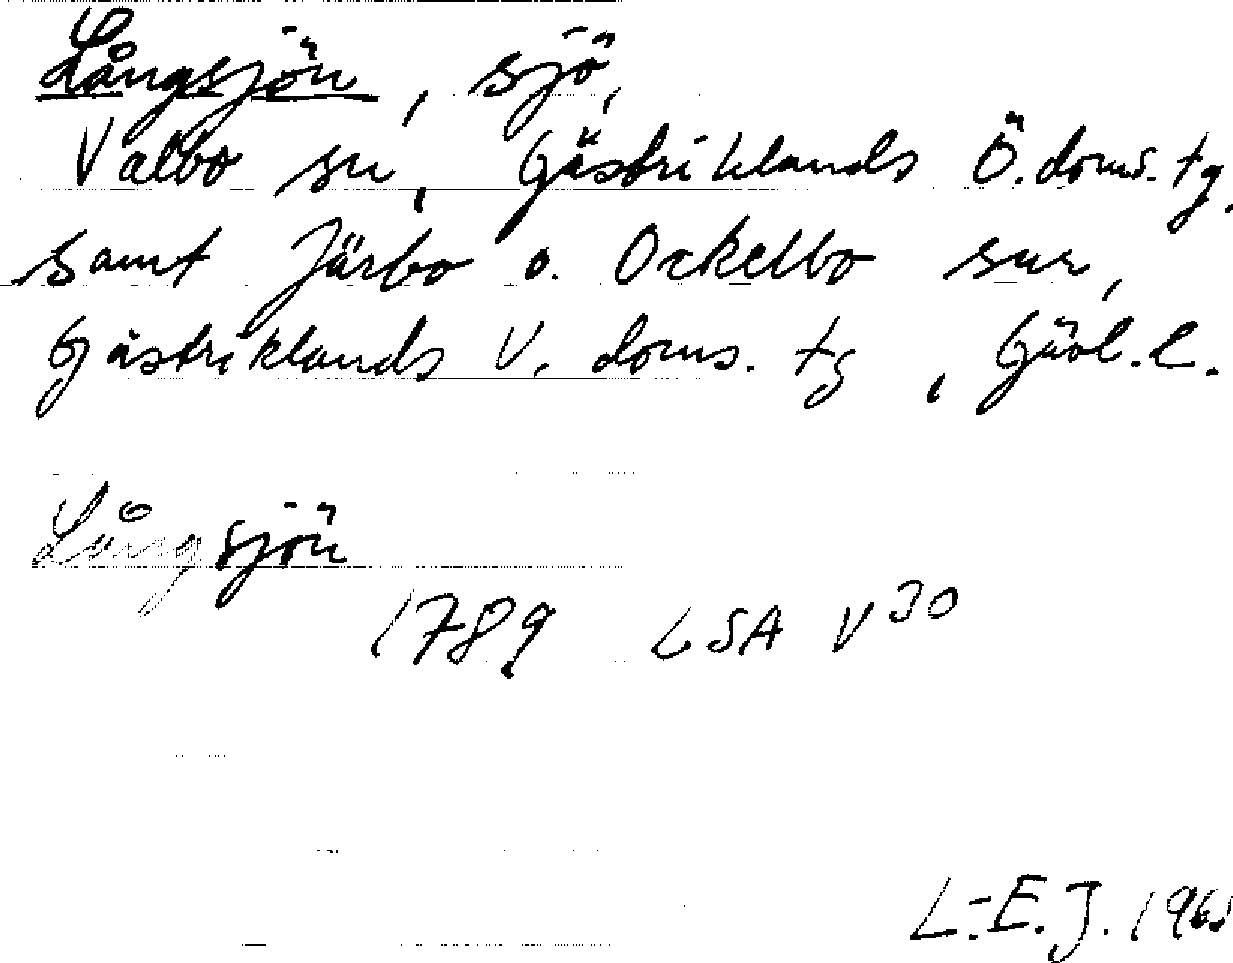 Långsjön, sjö,
Valbo sn, Gästriklands Ö. doms. tg.
samt Järbo o. Ockelbo snr,
Gästriklands V. doms. tg, Gävl. l.
Långsjön
1789 LSA V 30
L-E. J.